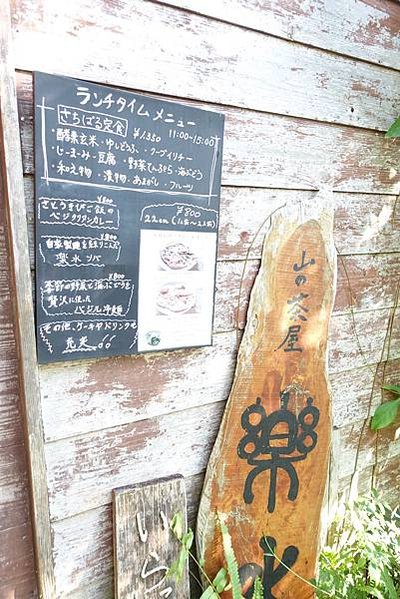 ランチタイムメニュー
さちばる定食 ¥1,350 11:00~15:00
・酵素玄米・ゆしどうふ・クーブイリチー
・じーまーみ豆腐・野菜てんぷら・海ぶどう
・和え物・漬物・あまがし・フルーツ
¥800
さとうきびご飯の
ベジタリアンカレー
¥800
自家製麺を
楽水ソバ
¥800
季節の野菜と海ぶどうを
贅沢に使った
バジル冷麺
その他、ケーキやドリンクも
充実
¥800
22cm
山の茶屋
楽水
いらっ